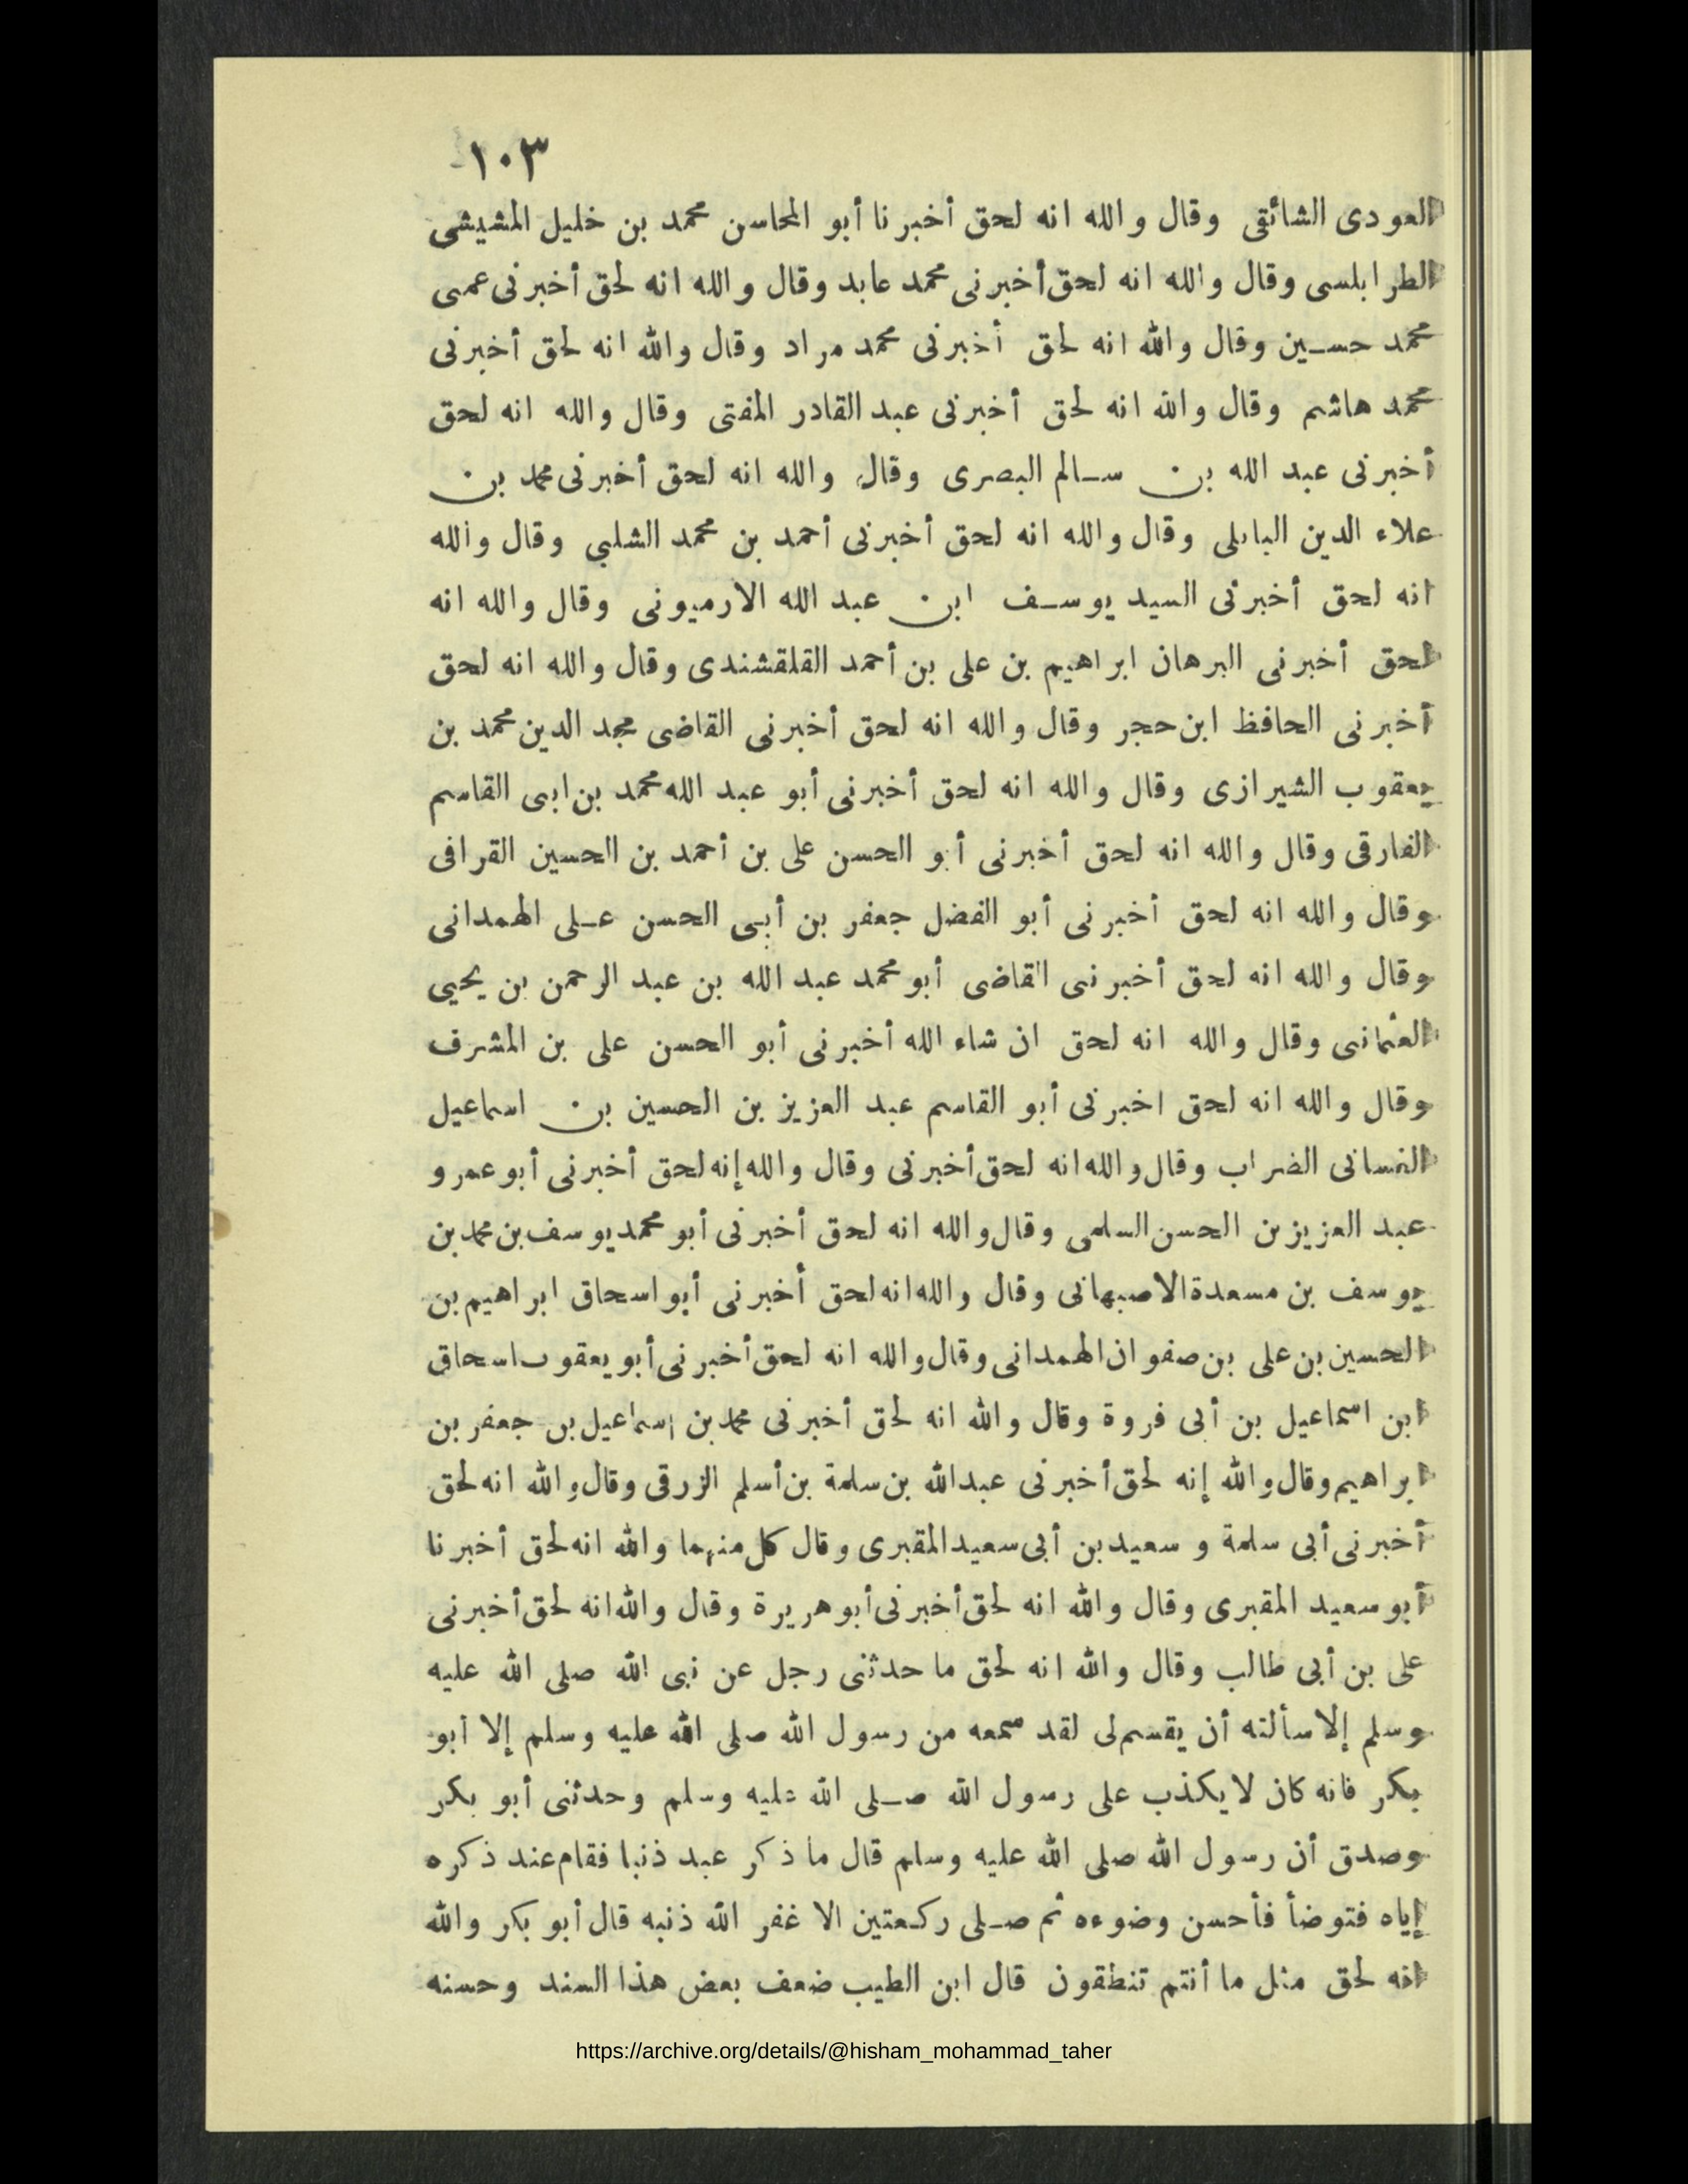 ١٠٣
العودى الشائقى وقال والله انه لحق أخبرنا أبو المحاسن محمد بن خليل المشيشى
الطرابلسى وقال والله انه لحق أخبرنى محمد عابد وقال والله انه لحق أخبرنى عمى
محمد حسين وقال والله انه لحق أخبرنى محمد مراد وقال والله انه لحق أخبرنى
محمد هاشم وقال والله انه لحق أخبرنى عبد القادر المفتى وقال والله انه لحق
أخبرنى عبد الله بن سالم البصرى وقال والله انه لحق أخبرنى محمد بن
علاء الدين البابلى وقال والله انه لحق أخبرنى أحمد بن محمد الشلبي وقال والله
انه لحق أخبرنى السيد يوسف ابن عبد الله الارميونى وقال والله انه
لحق أخبرنى البرهان ابراهيم بن على بن أحمد القلقشندى وقال والله انه لحق
أخبرنى الحافظ ابن حجر وقال والله انه لحق أخبرنى القاضى مجد الدين محمد بن
يعقوب الشيرازى وقال والله انه لحق أخبرنى أبو عبد الله محمد بن ابى القاسم
الفارقى وقال والله انه لحق أخبرنى أبو الحسن على بن أحمد بن الحسين القرافى
وقال والله انه لحق أخبرنى أبو الفضل جعفر بن أبى الحسن على الهمدانى
وقال والله انه لحق أخبرنى القاضى أبو محمد عبد الله بن عبد الرحمن بن يحيى
العثمانى وقال والله انه لحق ان شاء الله أخبرنى أبو الحسن على بن المشرف
وقال والله انه لحق اخبرنى أبو القاسم عبد العزيز بن الحسين بن اسماعيل
الغسانى الضراب وقال والله انه لحق أخبرنى وقال والله إنه لحق أخبرنى أبو عمرو
عبد العزيز بن الحسن السلمى وقال والله انه لحق أخبرنى أبو محمد يوسف بن محمد بن
يوسف بن مسعدة الاصبهانى وقال والله انه لحق أخبرنى أبو اسحاق ابراهيم بن
الحسين بن على بن صفوان الهمدانى وقال والله انه لحق أخبرنى أبو يعقوب اسحاق
ابن اسماعيل بن أبى فروة وقال والله انه لحق أخبرنى محمد بن إسماعيل بن جعفر بن
ابراهيم وقال والله إنه لحق أخبرنى عبد الله بن سلمة بن أسلم الزرقى وقال والله انه لحق
أخبرنى أبى سلمة و سعيد بن أبى سعيد المقبرى وقال كل منهما والله انه لحق أخبرنا
أبو سعيد المقبرى وقال والله انه لحق أخبرنى أبو هريرة وقال والله انه لحق أخبرنى
على بن أبى طالب وقال والله انه لحق ما حدثنى رجل عن نبى الله صلى الله عليه
وسلم إلا سألته أن يقسم لى لقد سمعه من رسول الله صلى الله عليه وسلم إلا أبو
بكر فانه كان لا يكذب على رسول الله صلى الله عليه وسلم وحدثنى أبو بكر
وصدق أن رسول الله صلى الله عليه وسلم قال ما ذكر عبد ذنبا فقام عند ذكره
إياه فتوضأ فأحسن وضوءه ثم صلى ركعتين الا غفر الله ذنبه قال أبو بكر والله
انه لحق مثل ما أنتم تنطقون قال ابن الطيب ضعف بعض هذا السند وحسنه
https://archive.org/details/@hisham_mohammad_taher